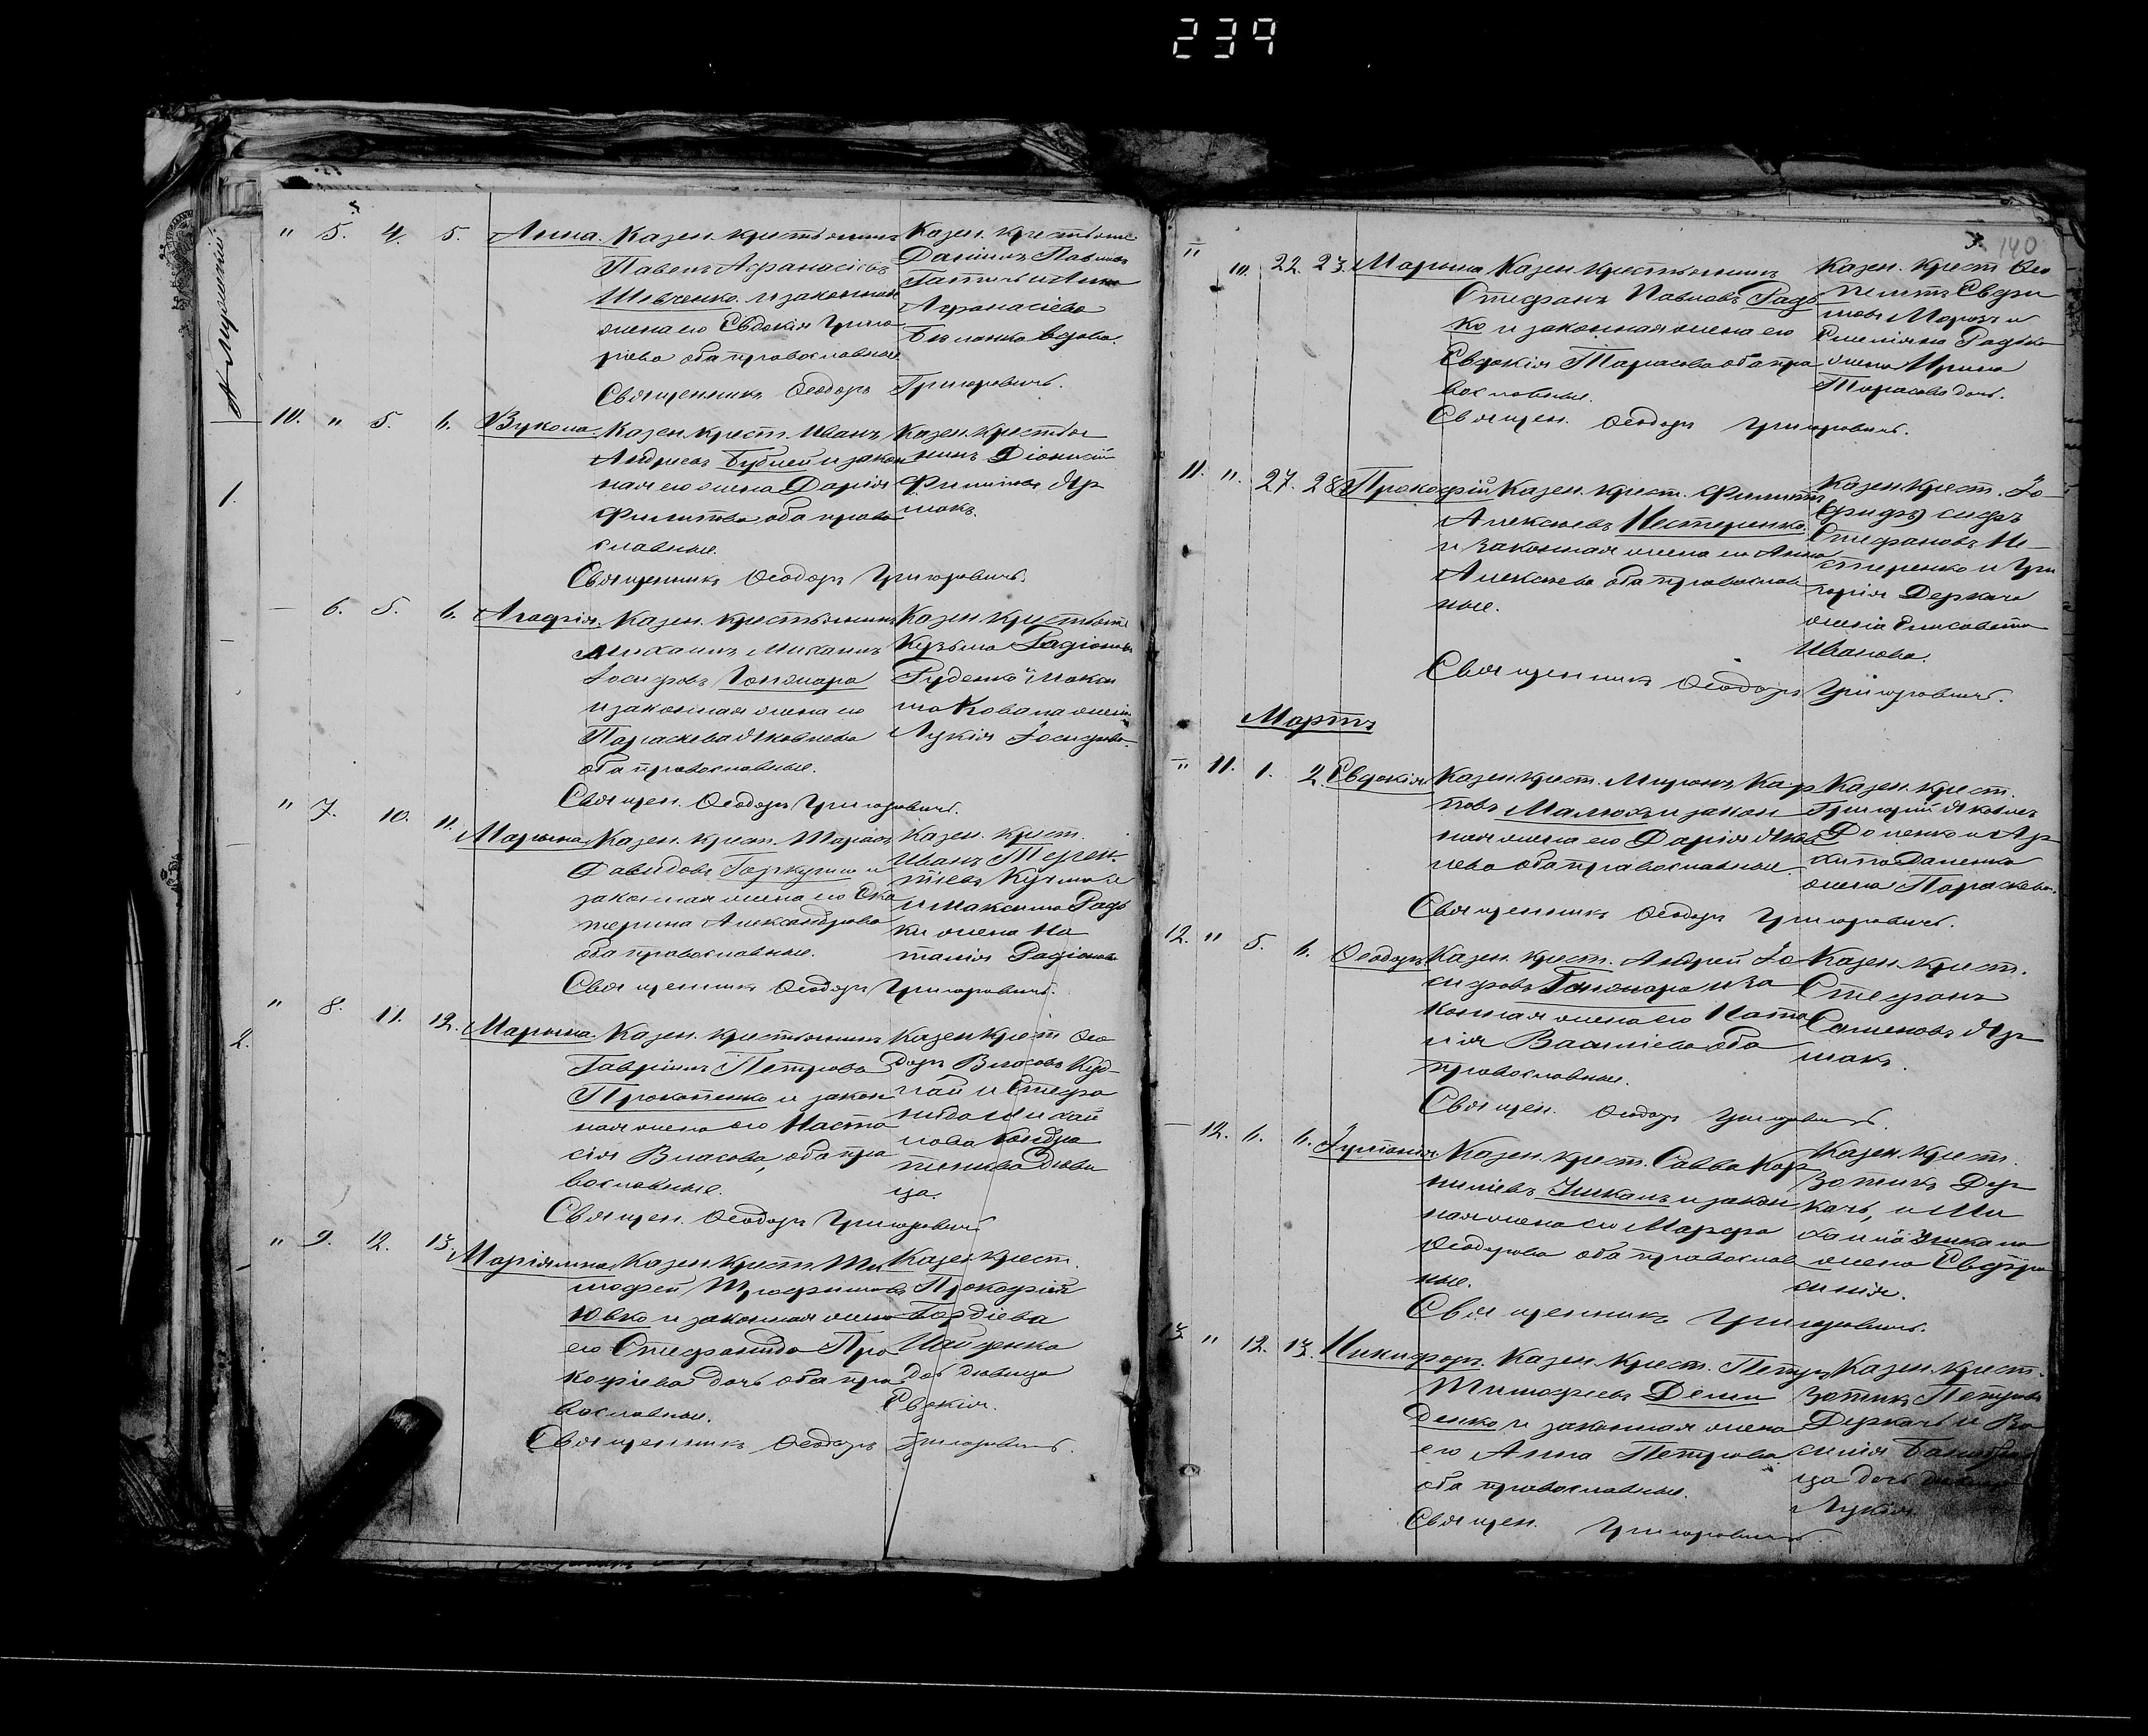 239
140
" 5. 4. 5. Анна. Казен. крестьянинъ
Павелъ Афанасіевъ
Шевченко и законная
жена его Евдокія Григо
ріева оба православные
Казен. крестьяне
Даніилъ Павловъ
Афанасіева
вдова.
Священникъ Ѳеодоръ Григоровичъ.
10. " 5. 6. Вукола. Казен. крест. Иванъ
Андреевъ Бублей и закон
ная его жена Дарія
Филипова оба право
славные.
Казен. крестья
нинъ Діонисій
Филиповъ Яр
макъ.
Священникъ Ѳеодоръ Григоровичъ.
6. 5. 6. Агафія. Казен. крестьянинъ
Михаилъ Михаилъ
Іосифовъ Гончаро
и законная жена его
Параскева Яковлева
оба православные.
Казен. крестьяне
Кузьма Радіоновъ
Руденко и Макси
ма Ковала жена
Лукія Іосифова.
Священ. Ѳеодоръ Григоровичъ.
" 7. 10. 11. Марьяна Казен. крест.
Давидовъ и
законная жена его Ека
терина Александрова
оба православные.
Казен. крест.
Иванъ Терен
тіевъ
и Максима Радь
ки жена На
талія Радіонова
Священникъ Ѳеодоръ Григоровичъ.
" 8. 11. 12. Марьяна. Казен. крестьянинъ
Гавріилъ Петровъ
Прокопенко и закон
ная жена его Наста
сія Власова, оба пра
вославные.
Казен. крест. Ѳео
доръ Власовъ
и Стефа
нида Михай
лова Кондра
дѣви
ца.
Священ. Ѳеодоръ Григоровичъ
" 9. 12. 13. Маріянна. Казен. крест. Ти
мофей Трофимовъ
Ювко и законная жена
его Стефанида Про
кофіева дочь оба пра
вославные.
Казен. крест.
Прокофій
Гордіевъ
дѣвица
Евдокія.
Священникъ Ѳеодоръ Григоровичъ.
" 10. 22. 23. Марьяна Казен. крестьянинъ
Стефанъ Павловъ Радь
ко и законная жена его
Евдокія Тарасова оба пра
вославные.
Казен. крест. Ѳео
Морозъ и
Емеліяна Радька
жена Ирина
Тарасова дочь.
Священ. Ѳеодоръ Григоровичъ.
11. " 27. 28. Прокофій Казен. крест. Филиппъ
Алексѣевъ Нестеренко
и законная жена его Анна
Алексѣева оба православ
ные.
Казен. крест. Іо
сифъ
Стефановъ Не
стеренко и Гри
горія Деркача
жена Елисавета
Иванова.
Священникъ Ѳеодоръ Григоровичъ.
Мартъ
" 11. 1. 2. Евдокія Казен. крест. Миронъ Кар
повъ Малюкъ и закон
ная жена его Дарія Яков
лева оба православные.
Казен. крест.
Григорій Яковлевъ
Доценко и Ар
хипа Даценка
жена Параскева.
Священникъ Ѳеодоръ Григоровичъ.
12. " 5. 6. Ѳеодоръ Казен. крест. Андрей Іо
сифовъ Гончаро и за
конная жена его Ната
лія Василіева оба
православные.
Казен. крест.
Стефанъ
Семеновъ Яр
макъ.
Священ. Ѳеодоръ Григоровичъ.
12. 6. 6. Іуліанія Казен. крест. Савва Кор
ниліевъ и закон
ная жена его Марфа
Ѳеодорова оба православ
ные.
Казен. крест.
Зотикъ Дер
качъ, и Ми
хаила
жена Евфро
синія.
Священникъ Григоровичъ.
13. " 12. 13. Никифоръ. Казен. крест. Петръ
Тимофеевъ Деми
денко и законная жена
его Анна Петрова
оба православные.
Казен. крест.
Зотикъ Петровъ
Деркачъ и Ва
силія
дочь
Лукія.
Священ. Григоровичъ.
1.
2.